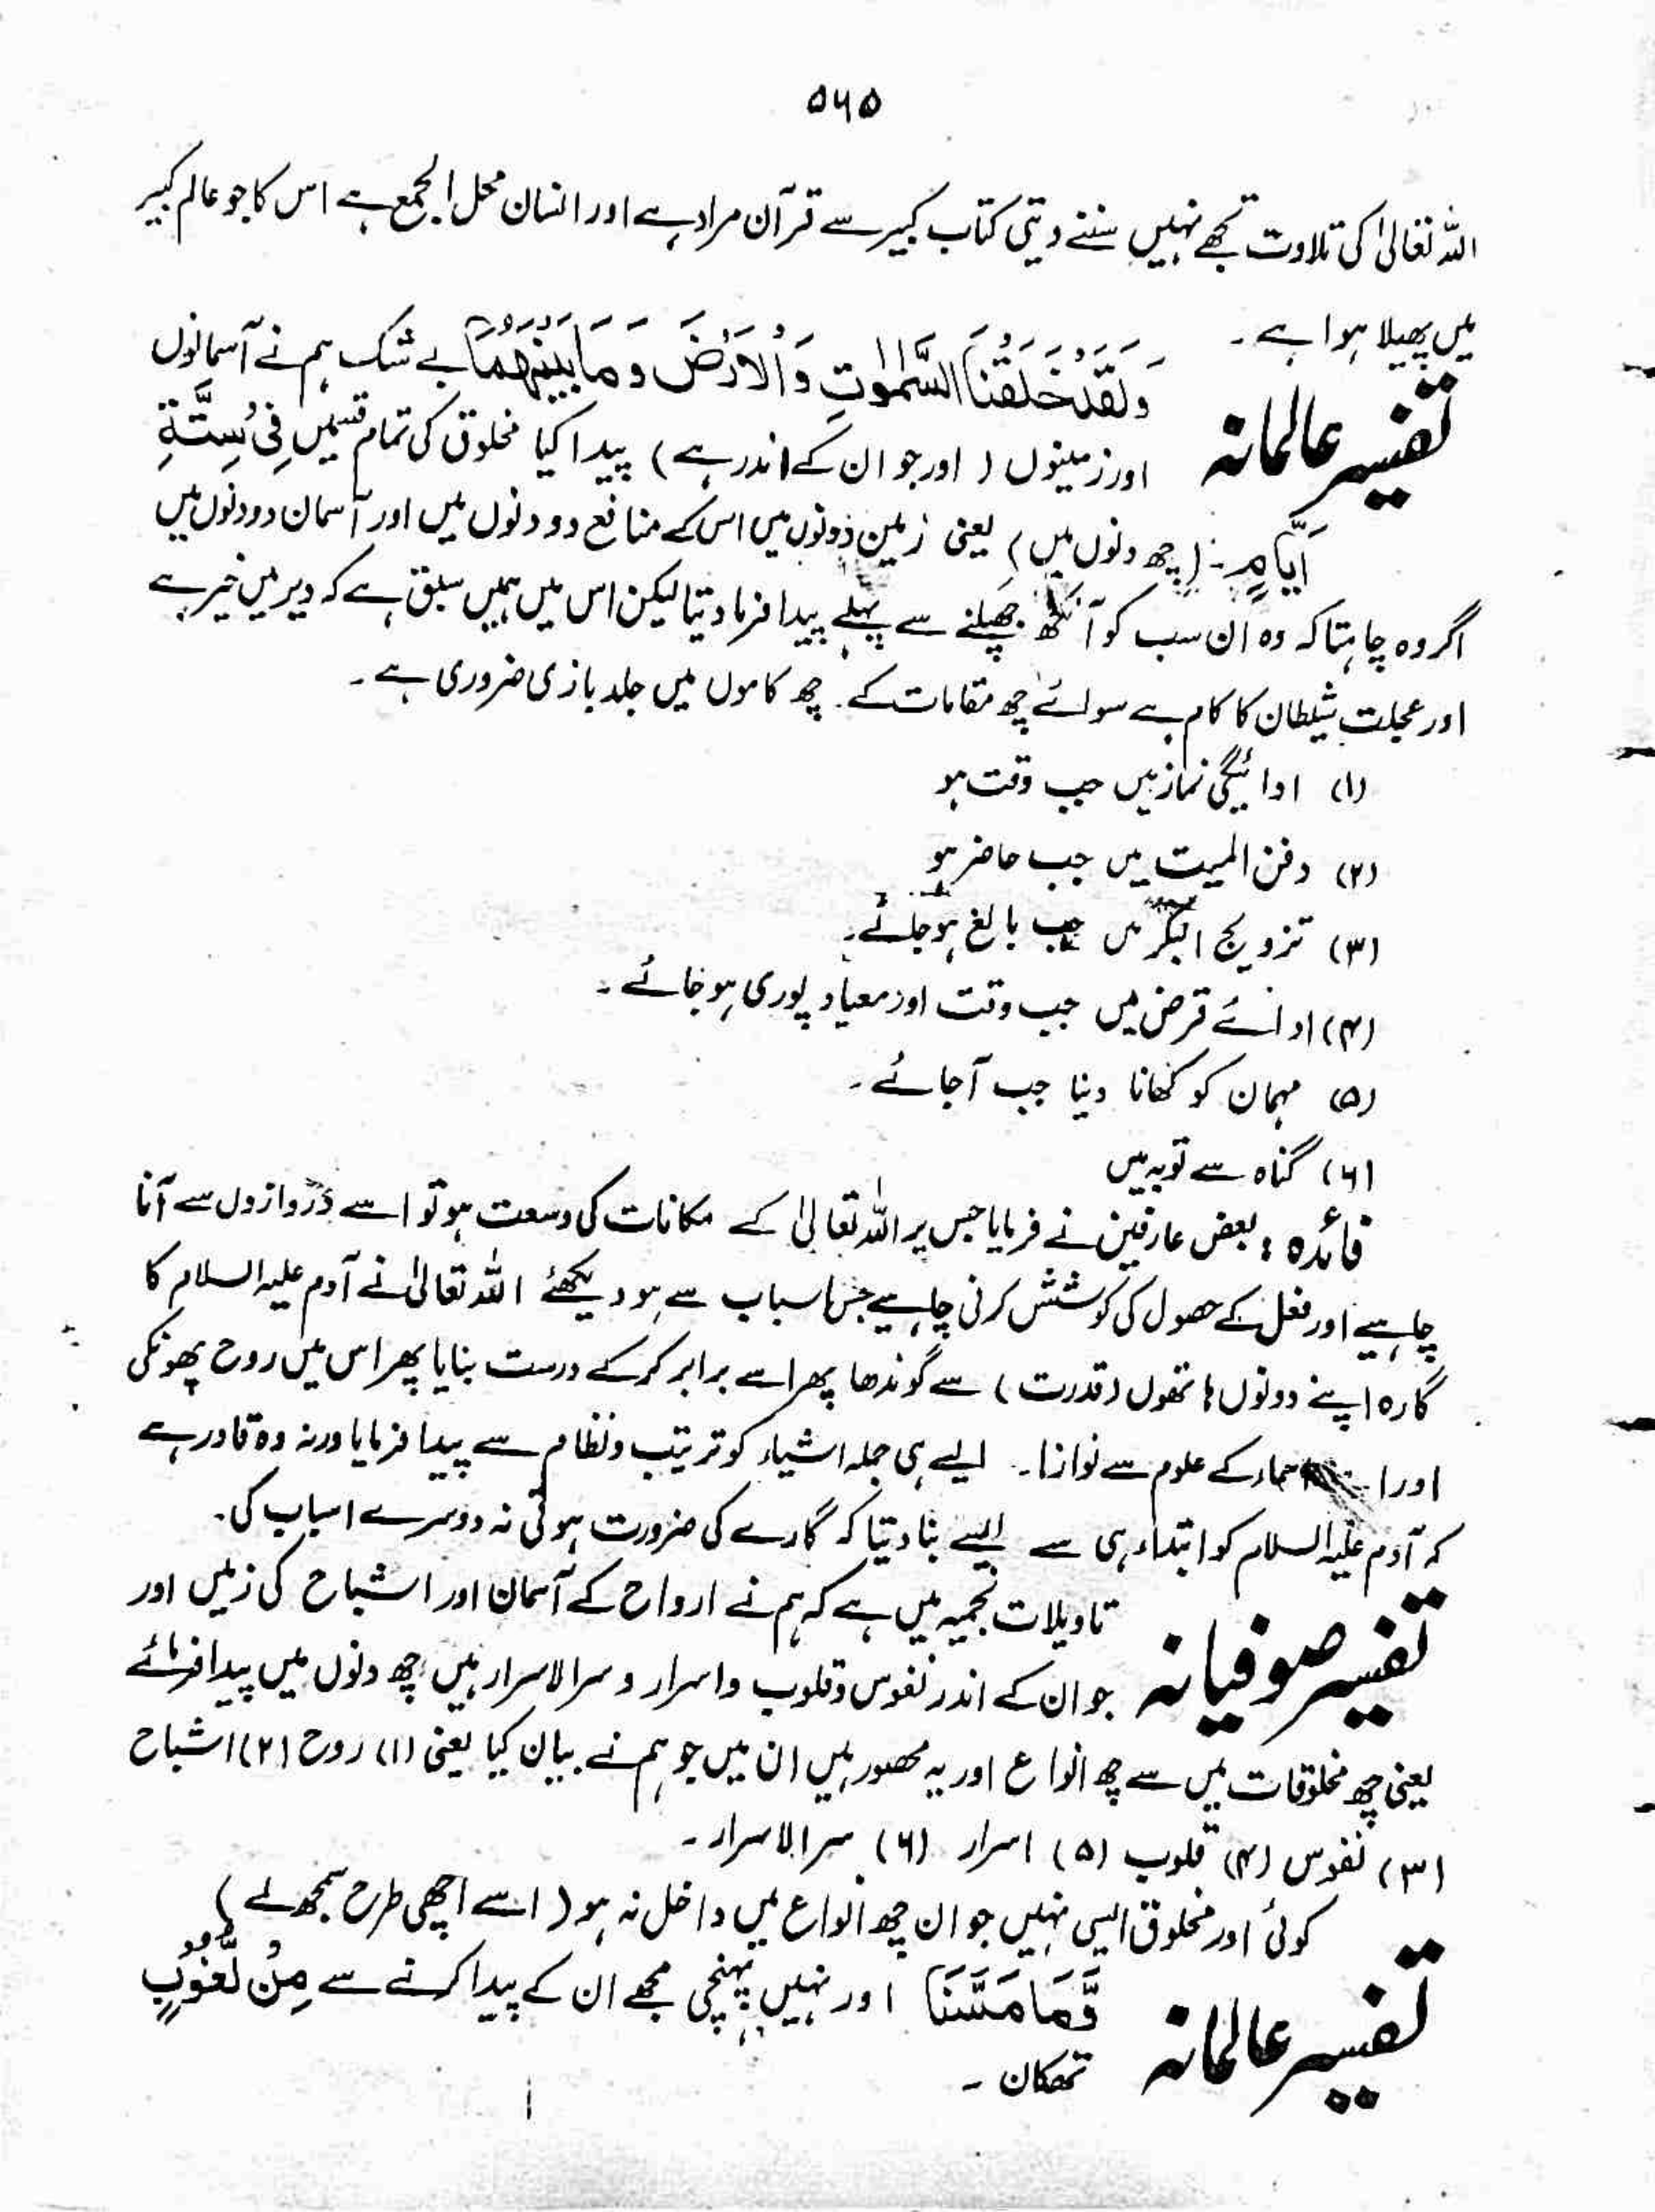 ۵۶۵
اللہ تعالیٰ کی تلاوت تجھے نہیں سننے دیتی کتاب کبیر سے قرآن مراد ہے اور انسان محل الجمع ہے اس کا جو عالم کبیر
میں پھیلا ہوا ہے ۔
تفسیر عالمانہ
وَلَقَدْ خَلَقْنَا السَّمٰوٰتِ وَالْاَرْضَ وَمَا بَيْنَهُمَا بے شک ہم نے آسمانوں
اور زمینوں ( اور جو ان کے اندر ہے ) پیدا کیا مخلوق کی تمام قسمیں فِیْ سِتَّةِ
اَیَّامٍ ۔ (چھ دنوں میں) یعنی زمین دو دنوں میں اس کے منافع دو دنوں میں اور آسمان دو دنوں میں
اگر وہ چاہتا کہ وہ ان سب کو آنکھ جھپکنے سے پہلے پیدا فرما دیتا لیکن اس میں ہمیں سبق ہے کہ دیر میں خیر ہے
اور عجلت شیطان کا کام ہے سوائے چھ مقامات کے ۔ چھ کاموں میں جلد بازی ضروری ہے ۔
(۱) ادائیگی نماز میں جب وقت ہو
(۲) دفن المیت میں جب حاضر ہو
(۳) تزویج البکر میں جب بالغ ہو جائے ۔
(۴) ادائے قرض میں جب وقت اور معیاد پوری ہو جائے ۔
(۵) مہمان کو کھانا دینا جب آجائے ۔
(۶) گناہ سے توبہ میں
فائدہ : بعض عارفین نے فرمایا جس پر اللہ تعالیٰ کے مکانات کی وسعت ہو تو اسے دروازوں سے آنا
چاہیے اور فعل کے حصول کی کوشش کرنی چاہیے جن اسباب سے ہو دیکھئے اللہ تعالیٰ نے آدم علیہ السلام کا
گارہ اپنے دونوں ہاتھوں (قدرت) سے گوندھا پھر اسے برابر کر کے درست بنایا پھر اس میں روح پھونکی
اور اسماء کے علوم سے نوازا ۔ ایسے ہی جملہ اشیاء کو ترتیب و نظام سے پیدا فرمایا ورنہ وہ قادر ہے
کہ آدم علیہ السلام کو ابتداء ہی سے ایسے بنا دیتا کہ گارے کی ضرورت ہوتی نہ دوسرے اسباب کی ۔
تفسیر صوفیانہ
تاویلات نجمیہ میں ہے کہ ہم نے ارواح کے آسمان اور اشباح کی زمیں اور
جو ان کے اندر نفوس و قلوب و اسرار و سر الاسرار ہیں چھ دنوں میں پیدا فرمائے
یعنی چھ مخلوقات میں سے چھ انواع اور یہ محصور ہیں ان میں جو ہم نے بیان کیا یعنی (۱) روح (۲) اشباح
(۳) نفوس (۴) قلوب (۵) اسرار (۶) سر الاسرار ۔
کوئی اور مخلوق ایسی نہیں جو ان چھ انواع میں داخل نہ ہو ( اسے اچھی طرح سمجھ لے )
تفسیر عالمانہ
وَّمَا مَسَّنَا اور نہیں پہنچی مجھے ان کے پیدا کرنے سے مِنْ لُّغُوْبٍ
تھکان ۔